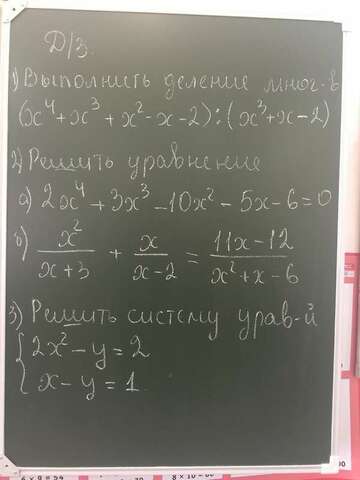 Д/З.
1) Выполнить деление мног-в
(x⁴+x³+x²-x-2):(x³+x-2)
2) Решить уравнение
а) 2x⁴+3x³-10x²-5x-6=0
б) x²/(x+3) + x/(x-2) = (11x-12)/(x²+x-6)
3) Решить систему урав-й
{2x²-y=2
{x-y=1
6 x 9 = 54
8 x 10 = 80